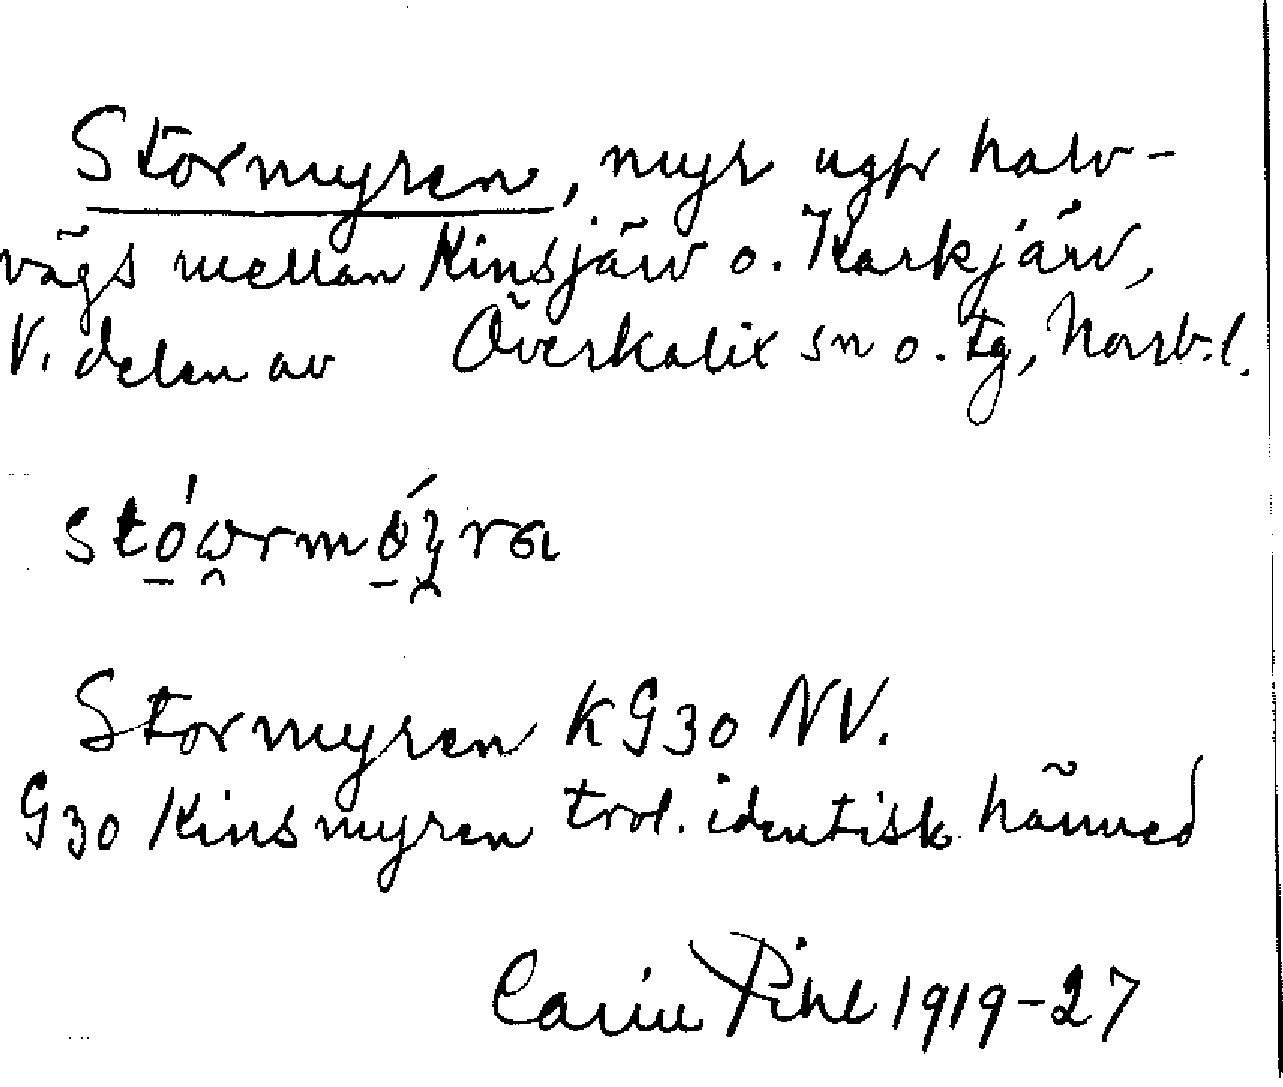 Stormyren, myr ugfr halv-
vägs mellan Kinsjärv o. Karkjärv,
V. delen av Överkalix sn o. tg, Norrb:l.
Stormyren KG30 NV.
G30 Kinsmyren trol. identisk härmed
Carin Pihl 1919-27